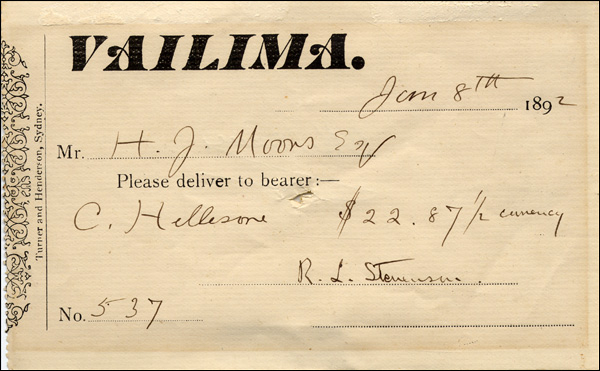 VAILIMA.
Jan 8TH 1892
Mr. H. J. Moors Esq
Please deliver to bearer:—
C. Hellesone $22.87 1/2 currency
R. L. Stevenson.
No. 537
Turner and Henderson, Sydney.